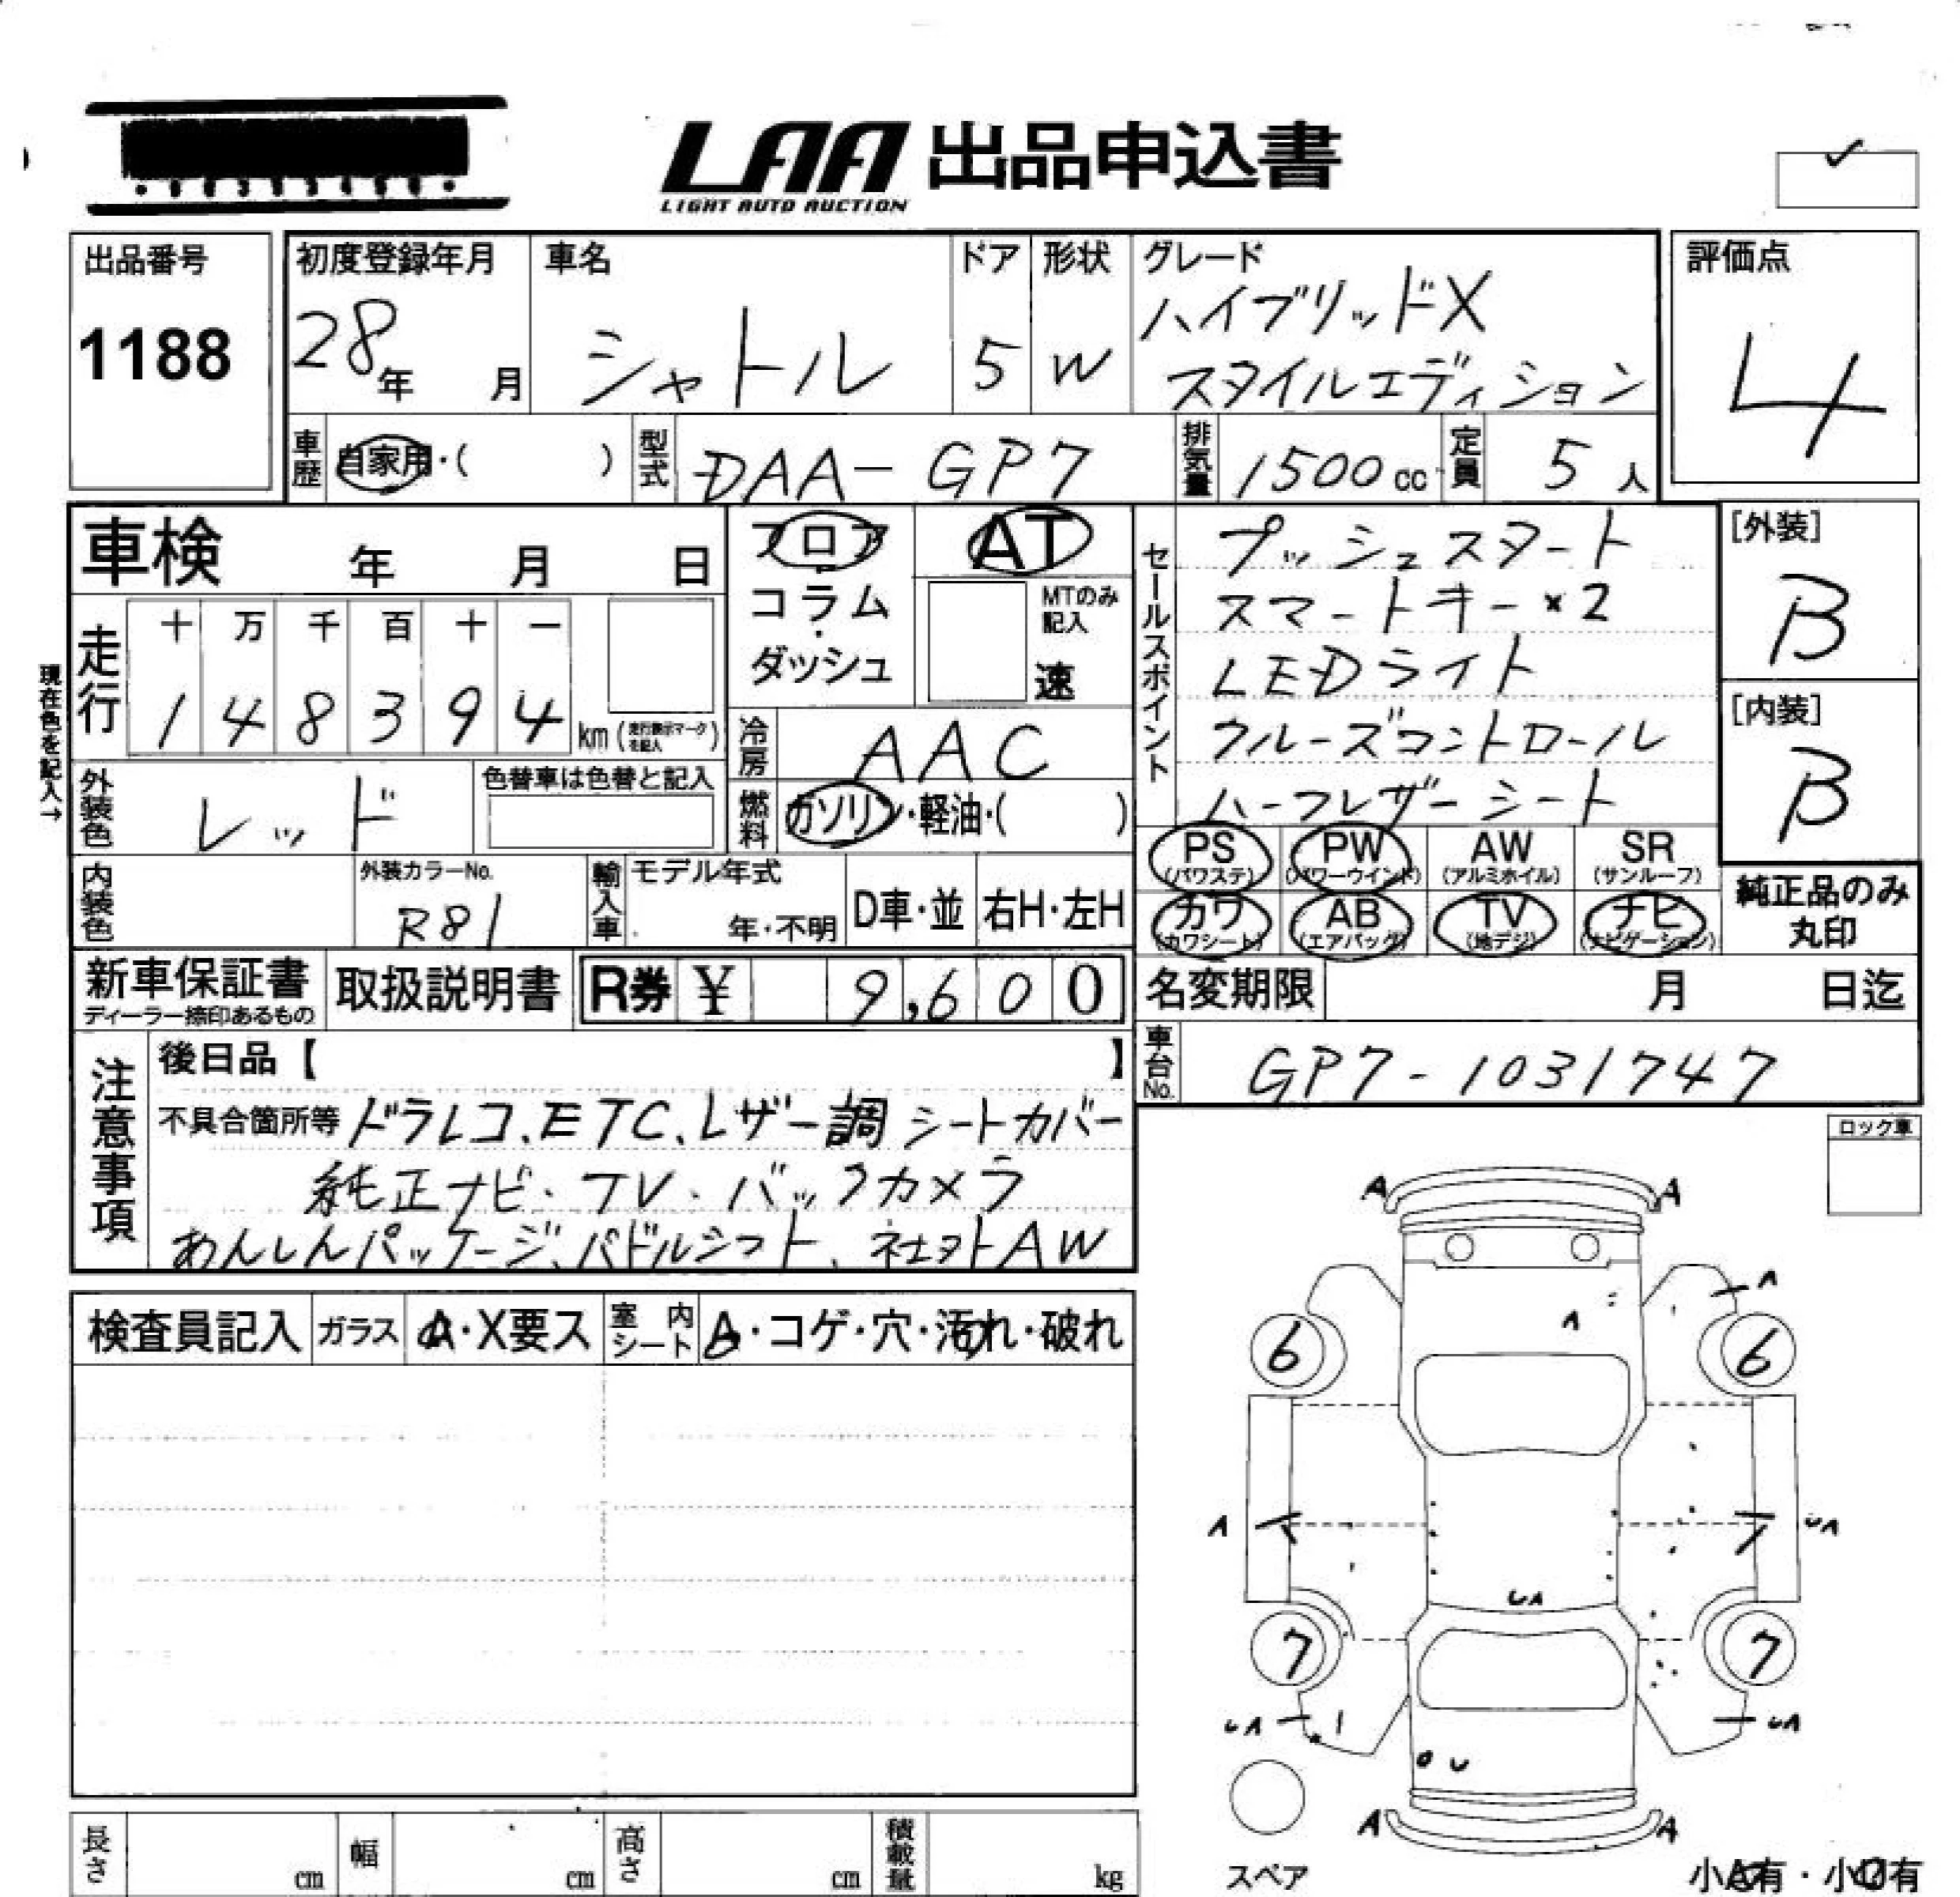 LAA 出品申込書
LIGHT AUTO AUCTION
出品番号
1188
初度登録年月
28年 月
車名
シャトル
ドア
5
形状
W
グレード
ハイブリッドX
スタイルエディション
評価点
4
車歴 自家用・( )
型式 DAA-GP7
排気量 1500cc
定員 5人
車検 年 月 日
フロア・コラム・ダッシュ
AT
MTのみ記入
速
走行
十 万 千 百 十 一
1 4 8 3 9 4 km
現在色を記入→
外装色 レッド
色替車は色替と記入
冷房 AAC
燃料 ガソリン・軽油・( )
内装色
外装カラーNo.
R81
輸入車
モデル年式
年・不明
D車・並
右H・左H
セールスポイント
プッシュスタート
スマートキー×2
LEDライト
クルーズコントロール
ハーフレザーシート
[外装]
B
[内装]
B
PS (パワステ)
PW (パワーウインド)
AW (アルミホイル)
SR (サンルーフ)
カワ (カワシート)
AB (エアバッグ)
TV (地デジ)
ナビ (ナビゲーション)
純正品のみ
丸印
新車保証書
ディーラー捺印あるもの
取扱説明書
R券 ¥ 9,600
名変期限 月 日迄
車台No. GP7-1031747
注意事項
後日品【 】
不具合箇所等 ドラレコ、ETC、レザー調シートカバー
純正ナビ・TV・バックカメラ
あんしんパッケージ、パドルシフト、社外AW
ロック車
検査員記入
ガラス
A・X要ス
室内シート
A・コゲ・穴・汚れ・破れ
A A
A
A
6 6
A UA
UA
7 7
UA UA
U
A A
スペア
小A有・小U有
長さ cm
幅 cm
高さ cm
積載量 kg